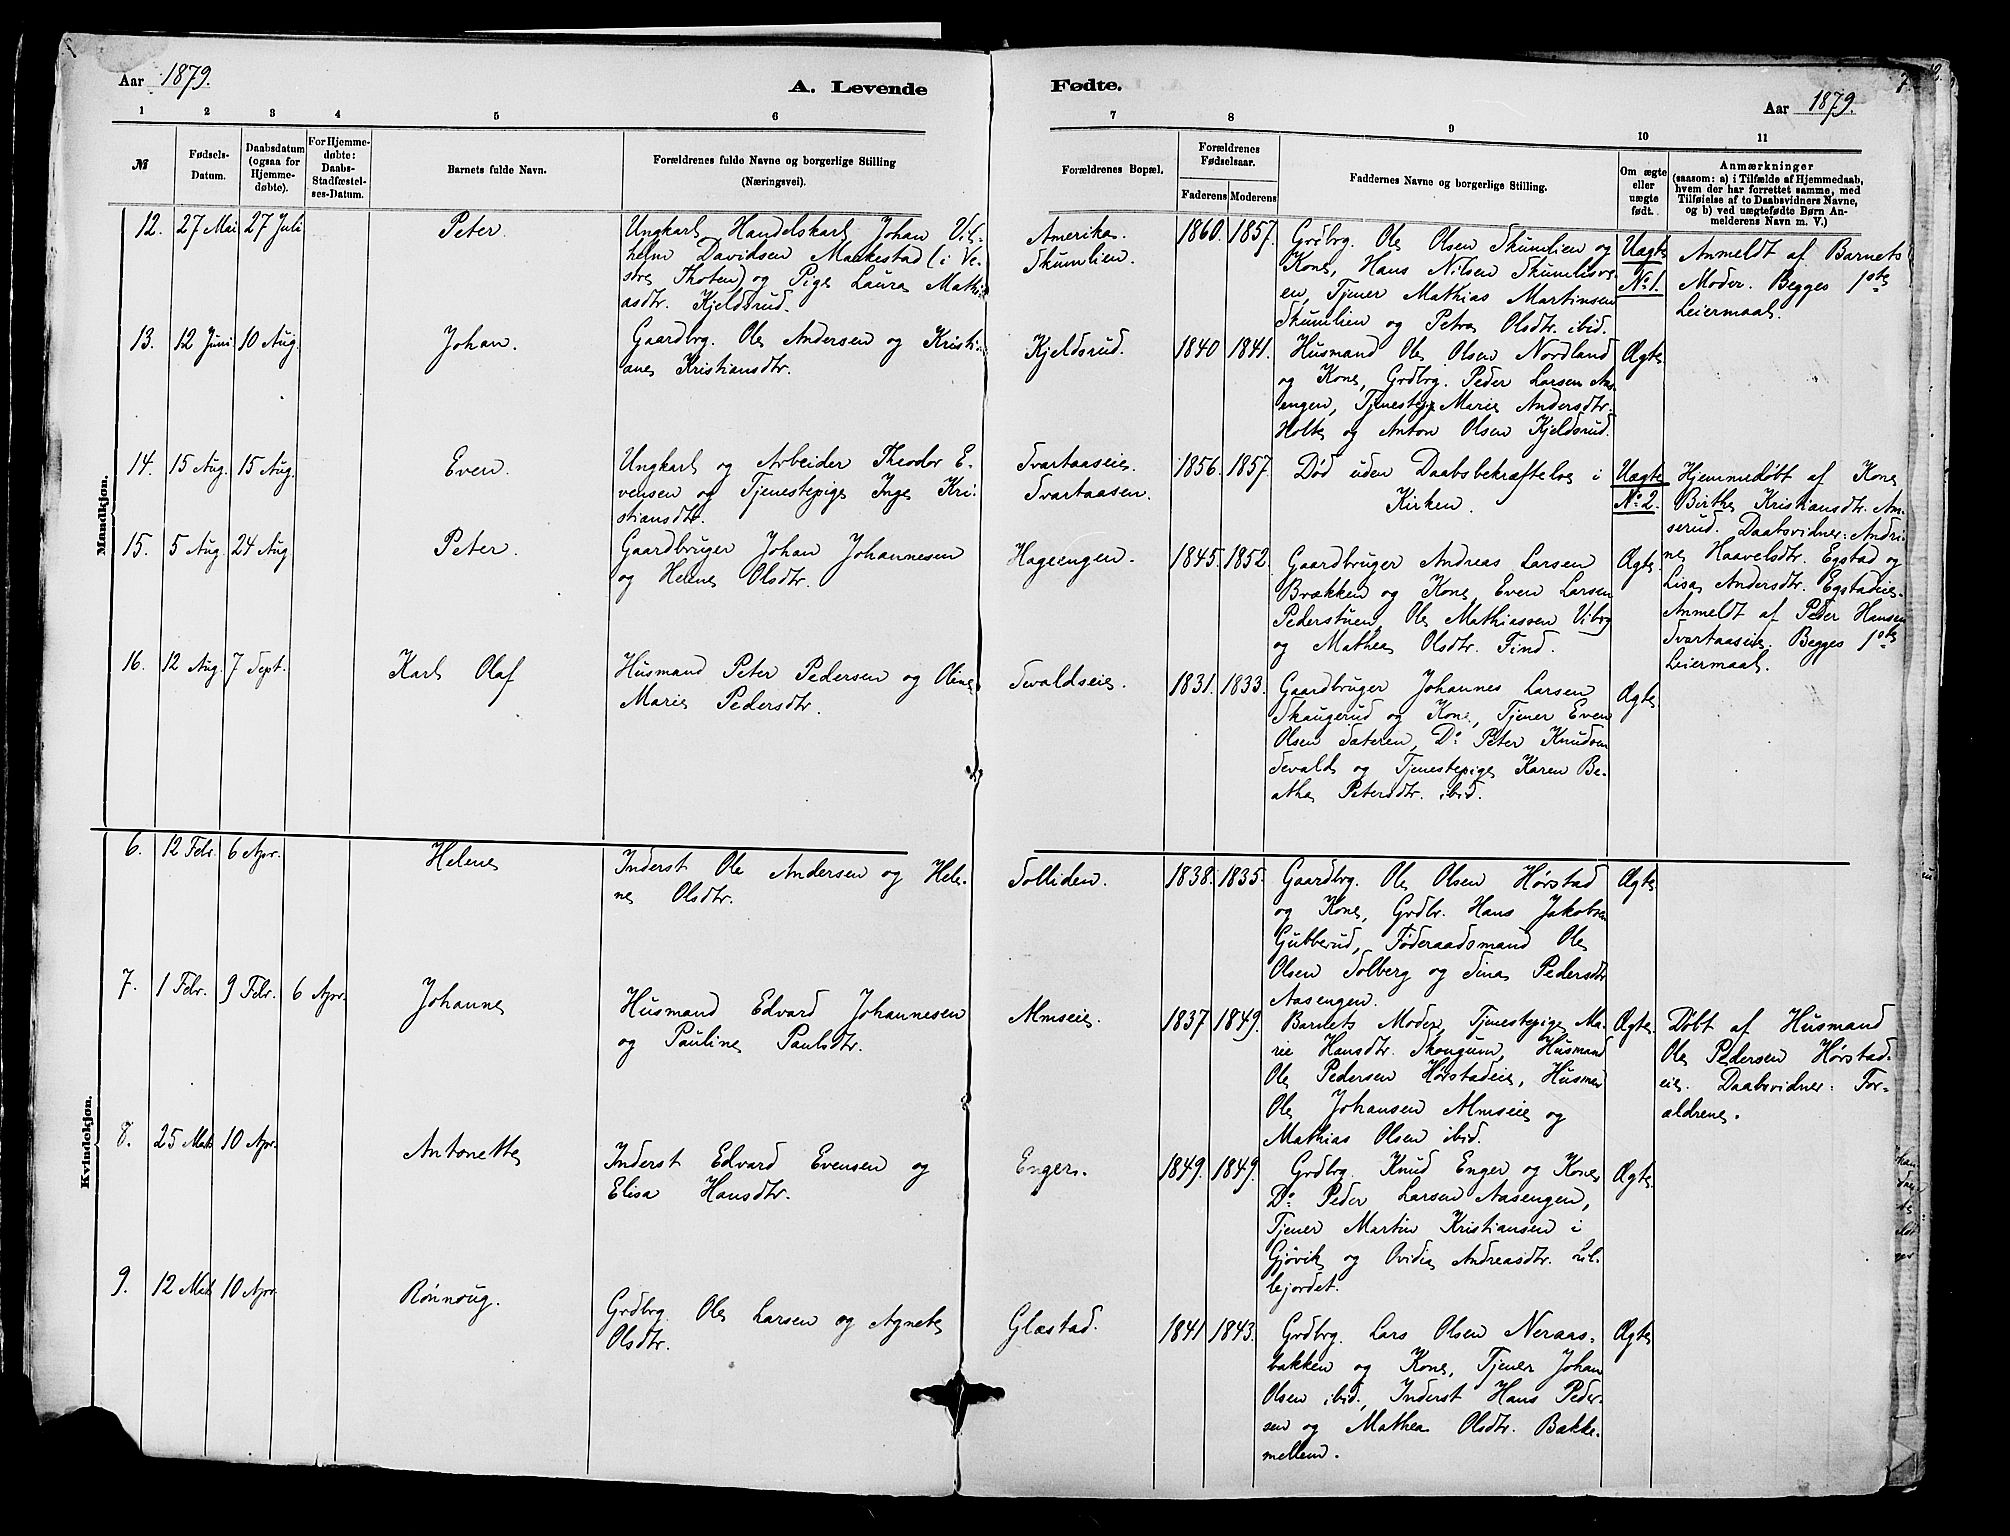 Aar 1879.
A. Levende
Fødte.
Aar 1879.
7.
1 2 3 4 5 6 7 8 9 10 11
№
Fødsels-
Datum.
Daabsdatum
(ogsaa for
Hjemme-
døbte).
For Hjemme-
døbte:
Daabs-
Stadfæstel-
ses-Datum.
Barnets fulde Navn.
Forældrenes fulde Navne og borgerlige Stilling
(Næringsvei).
Forældrenes Bopæl.
Forældrenes
Fødselsaar.
Faderens Moderens
Faddernes Navne og borgerlige Stilling.
Om ægte
eller
uægte
født.
Anmærkninger
(saasom: a) i Tilfælde af Hjemmedaab,
hvem der har forrettet samme, med
Tilføielse af to Daabsvidners Navne,
og b) ved uægtefødte Børn An-
melderens Navn m. V.)
Mandkjøn.
12. 27 Mai 27 Juli
Peter.
Ungkarl Handelskarl Johan Vil-
helm Davidsen Markestad (i Ve-
stre Thoten) og Pige Laura Mathi-
asdtr. Kjeldsrud.
Amerika.
Skumlien.
1860. 1857.
Grdbrg. Ole Olsen Skumlien og
Kone, Hans Nilsen Skumlisve-
en, Tjener Mathias Martinsen
Skumlien og Petra Olsdtr. ibid.
Uægte
No 1.
Anmeldt af Barnets
Moder. Begges 1ste
Leiermaal.
13. 12 Juni 10 Aug.
Johan.
Gaardbrg. Ole Andersen og Kristi-
ane Kristiansdtr.
Kjeldsrud.
1840 1841.
Husmand Ole Olsen Nordland
og Kone, Grdbrg. Peder Larsen Aas-
engen, Tjenestep. Marie Andersdtr.
Holte og Anton Olsen Kjeldsrud.
Ægte
14. 15 Aug. 15 Aug.
Even.
Ungkarl og Arbeider Theodor E-
vensen og Tjenestepige Inge Kri-
stiansdtr.
Svartaaseie.
Svartaasen.
1856. 1857.
Død uden Daabsbekræftelse i
Kirken.
Uægte
No 2.
Hjemmedøbt af Kone
Birthe Kristiansdtr. Am-
serud. Daabsvidner: Andri-
ne Haavelsdtr. Egstad og
Lisa Andersdtr. Egstadeie.
Anmeldt af Peter Hansen
Svartaaseie. Begges 1ste
Leiermaal.
15. 5 Aug. 24 Aug
Peter.
Gaardbruger Johan Johannesen
og Helene Olsdtr.
Hageengen.
1845. 1852.
Gaardbruger Andreas Larsen
Brækken og Kone, Even Larsen
Pederstuen, Ole Mathiasen Viborg
og Mathea Olsdtr. Find.
Ægte
16. 12 Aug. 7 Sept.
Karl Olaf
Husmand Peter Pedersen og Oline
Marie Pedersdtr.
Sevaldseie.
1831. 1833.
Gaardbruger Johannes Larsen
Skaugerud og Kone, Tjener Even
Olsen Sateren, Do Peter Knudsen
Sevald og Tjenestepige Karen Be-
athe Petersdtr. ibid.
Ægte
Kvindekjøn.
6. 12 Febr. 6 Apr.
Helene
Inderst Ole Andersen og Hele-
ne Olsdtr.
Solliden.
1838. 1835.
Gaardbrg. Ole Olsen Hørstad
og Kone, Grdbr. Hans Jakobsen
Gubberud, Føderaadsmand Ole
Olsen Solberg og Sina Pedersdtr
Aasengen.
Ægte
7. 1 Febr. 9 Febr. 6 Apr.
Johanne
Husmand Edvard Johannesen
og Pauline Paulsdtr.
Almseie.
1837 1849.
Barnets Moder, Tjenestepige Ma-
rie Hansdtr. Skongum, Husmand
Ole Pedersen Hørstadeie, Husmd
Ole Johansen Almseie og
Mathias Olsen ibid.
Ægte.
Døbt af Husmand
Ole Pedersen Hørstad-
eie. Daabsvidner: For-
ældrene.
8. 25 Mats 10 Apr.
Antonette
Inderst Edvard Evensen og
Elisa Hansdtr.
Enger.
1849. 1849.
Grdbrg. Knud Enger og Kone
Do Peder Larsen Aasengen,
Tjener Martin Kristiansen i
Gjøvik og Ovidia Andreasdtr. Lil-
lejordet.
Ægte.
9. 12 Mats 10 Apr.
Rønnoug.
Grdbrg. Ole Larsen og Agnete
Olsdtr.
Glæstad.
1841 1843.
Grdbrg. Lars Olsen Neraas-
bakken og Kone, Tjener Johan
Olsen ibid., Inderst Hans Peder-
sen og Mathea Olsdtr. Bakke-
mellem.
Ægte